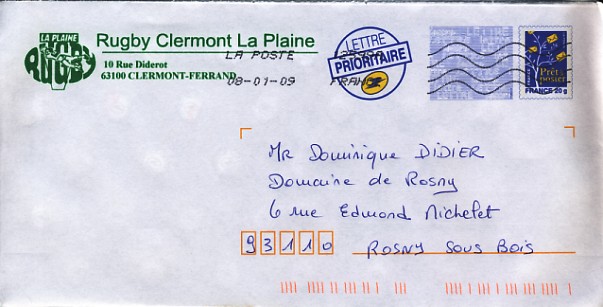 LA PLAINE
RUGBY
Rugby Clermont La Plaine
10 Rue Diderot
63100 CLERMONT-FERRAND
LA POSTE
08-01-09 FRANCE
LETTRE
PRIORITAIRE
Prêt-à-
poster
FRANCE 20g
Mr Dominique DIDIER
Domaine de Rosny
6 rue Edmond Michelet
93110 ROSNY SOUS BOIS